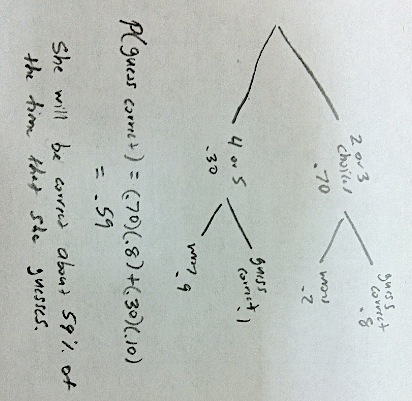 2 or 3
choices
.70
guess
correct
.8
wrong
.2
4 or 5
.30
guess
correct .1
wrong .9
P(guess correct) = (.70)(.8)+(.30)(.10)
= .59
She will be correct about 59% of
the time that she guesses.